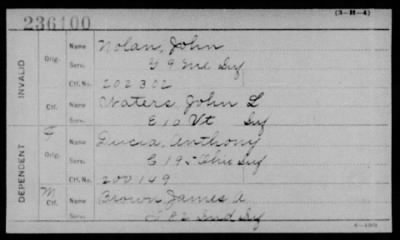 236100
(3-H-4)
INVALID
Orig. Name Nolan, John
Serv. G 9 Me Inf
Ctf. No. 202302
Ctf. Name Waters, John L
Serv. E 10 Vt Inf
DEPENDENT
F
Orig. Name Lucia, Anthony
Serv. G 195 Ohio Inf
Ctf. No. 200149
M
Ctf. Name Brown, James A.
Serv. 82 Ind Inf